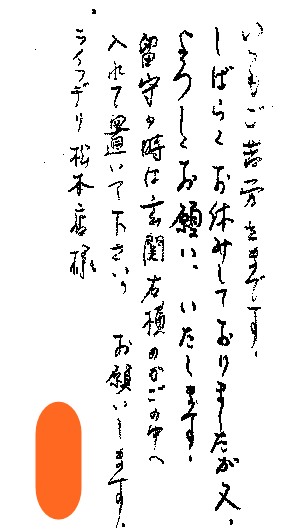 いつもご苦労さまです。
しばらくお休みしておりましたが又、
よろしくお願いいたします。
留守の時は玄関右横のかごの中へ
入れて置いて下さい。お願いします。
ライフデリ松本店様